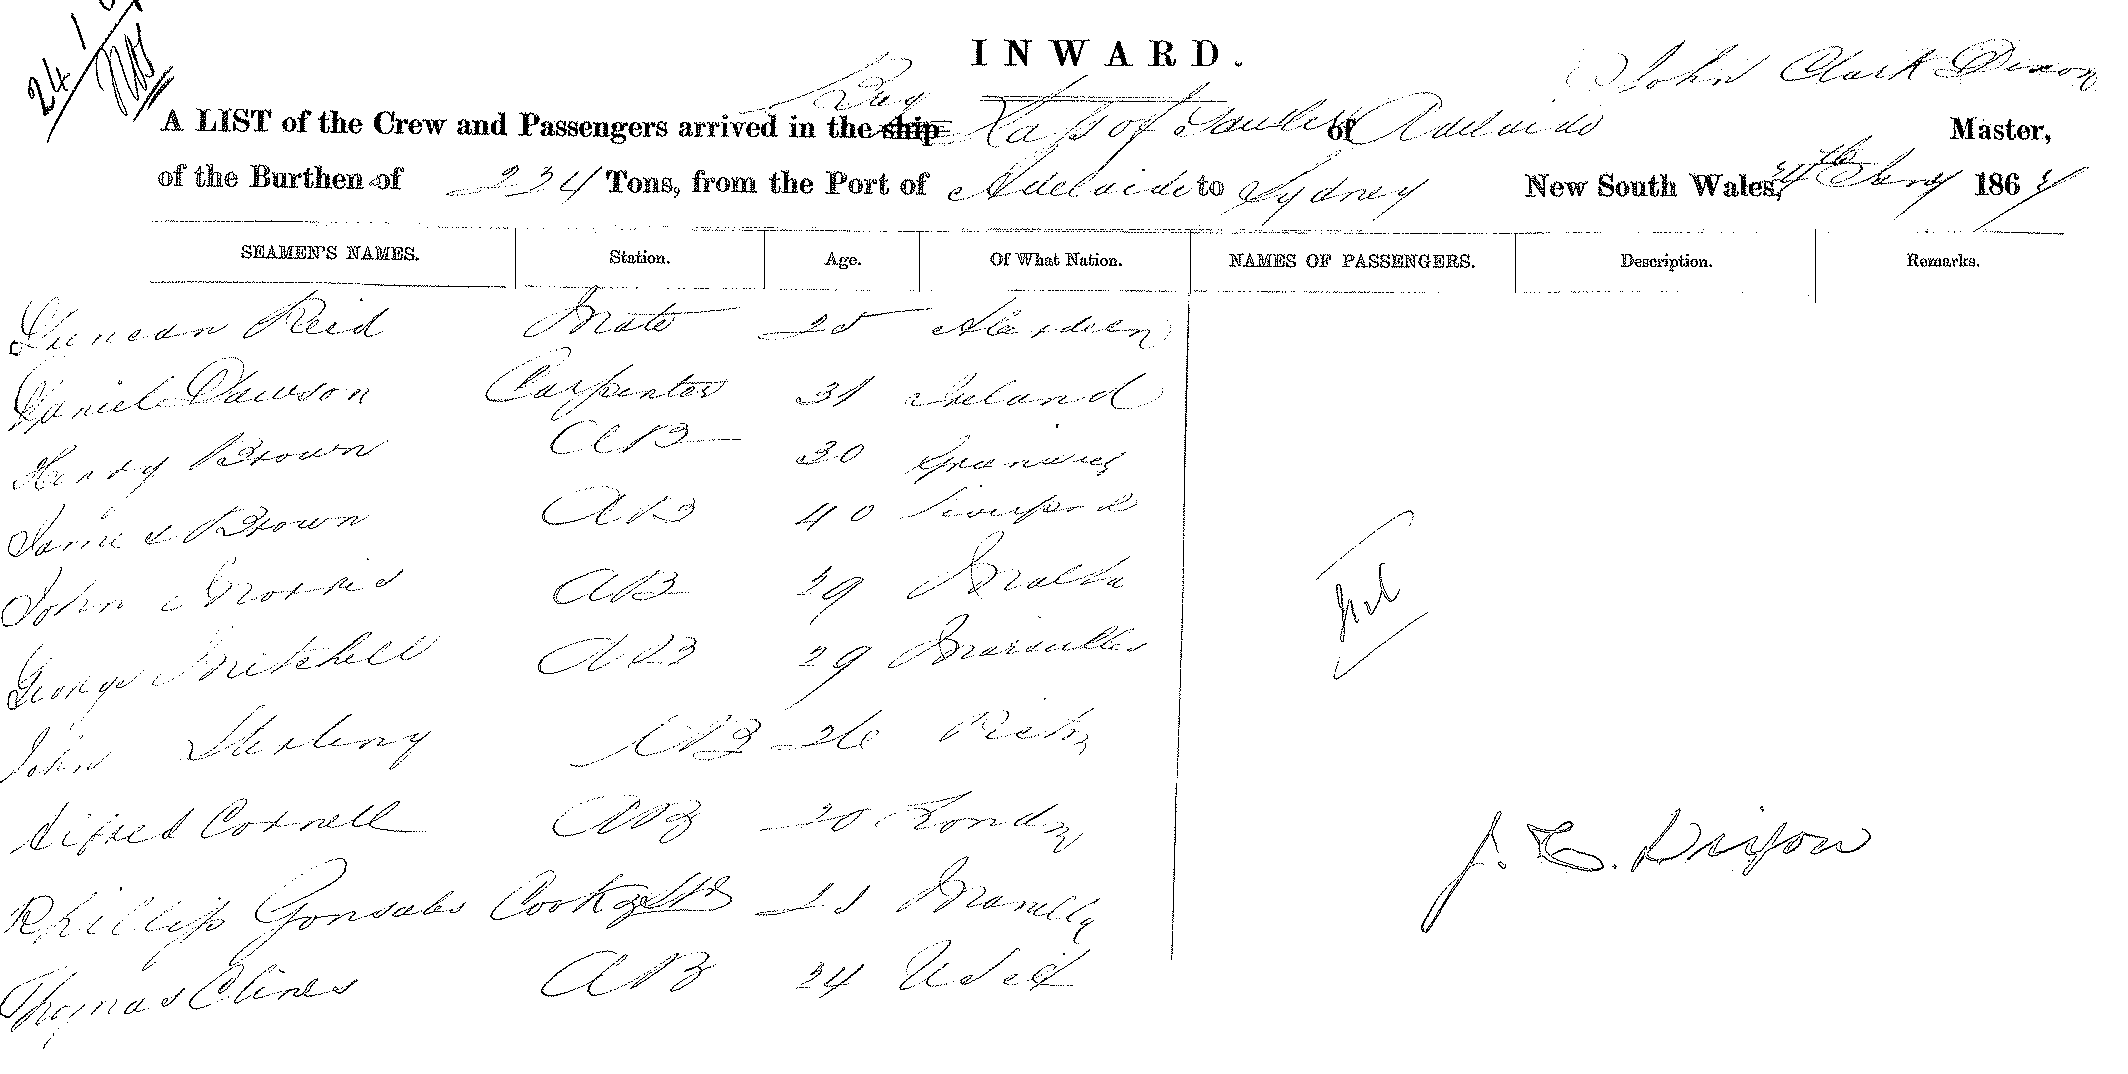 24/1
INWARD.
John Clark Dixon
A LIST of the Crew and Passengers arrived in the ship Brig Lass of Gawler of Adelaide Master,
of the Burthen of 234 Tons, from the Port of Adelaide to Sydney New South Wales, 24th Jany 186
SEAMEN'S NAMES. Station. Age. Of What Nation. NAMES OF PASSENGERS. Description. Remarks.
Duncan Reid Mate 25 Aberdeen
Daniel Dawson Carpenter 31 Ireland
Henry Brown AB 30
James Brown AB 40 Liverpool
John Morris AB 29 Malta
George Mitchell AB 29 Marseilles
John Sterling AB 26
Alfred Cornell AB 20 London
Phillip Gonsales Cook & Std Manilla
Thomas Clines AB 24
Nil
J. C. Dixon